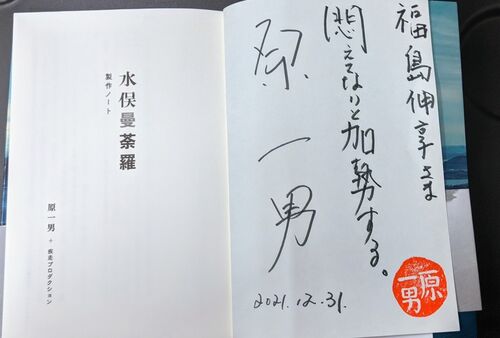 水俣曼荼羅
製作ノート
原一男+疾走プロダクション
福島伸享さま
悶えてなりと加勢する。
原一男
2021.12.31.
原一男